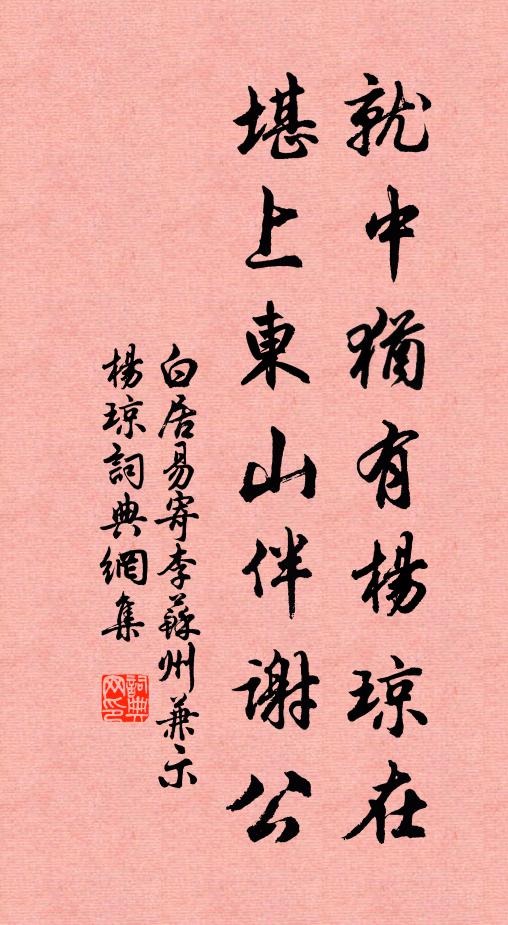 就中猶有楊琼在
堪上東山伴謝公
白居易寄李蘇州兼示
楊琼詞典網集
詞典
网印